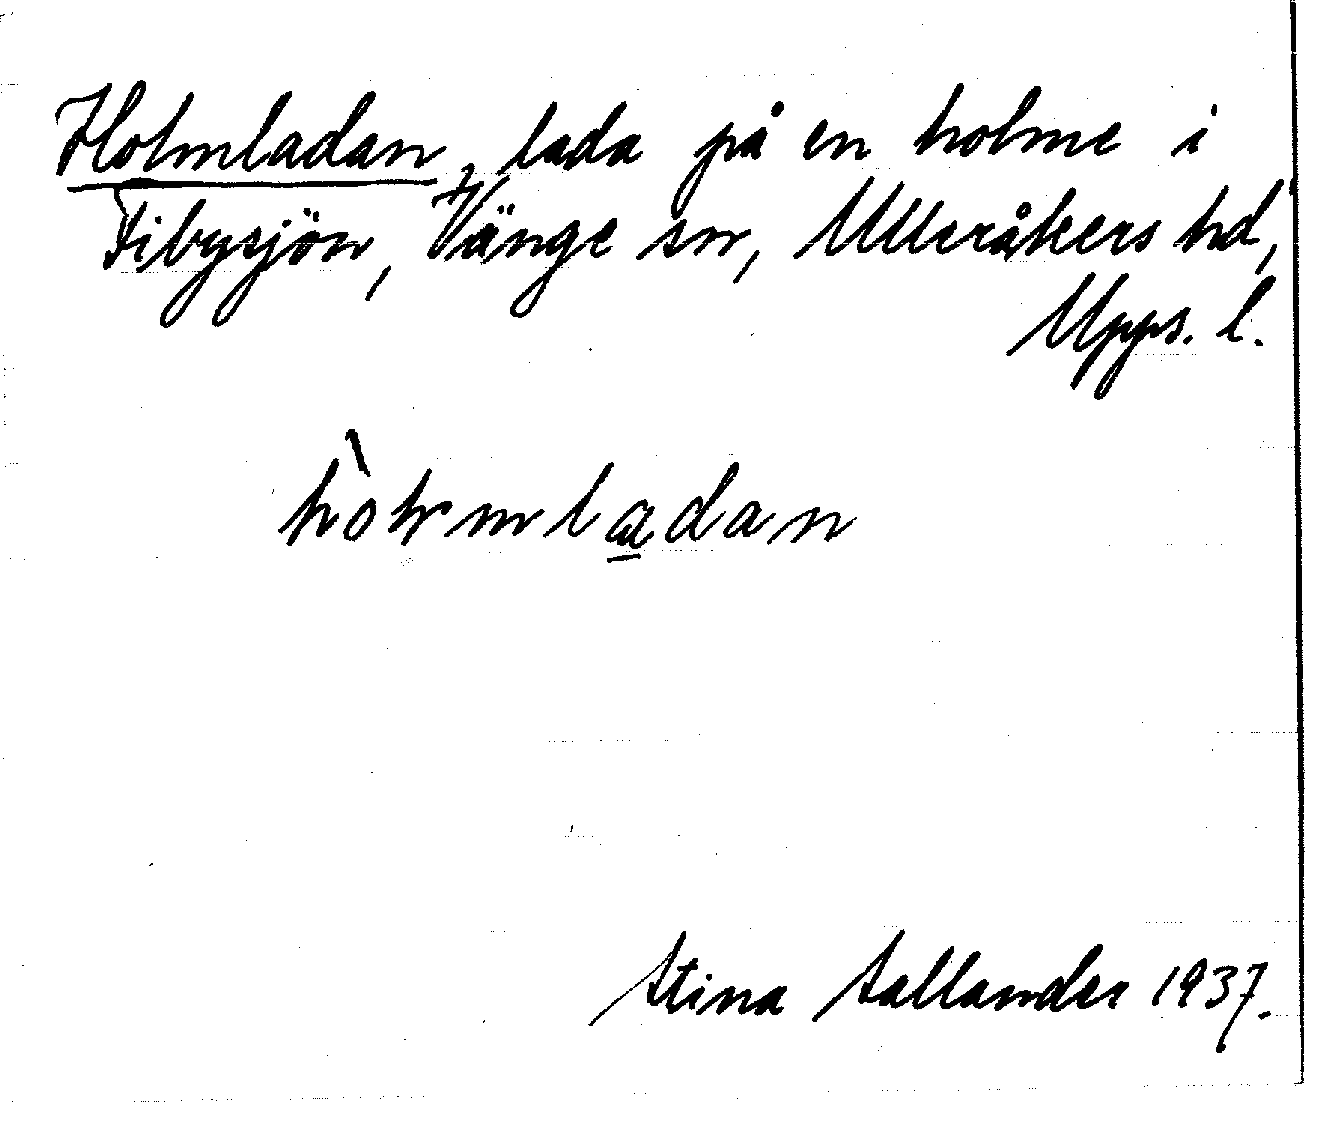 Holmladan, lada på en holme i
Fibysjön, Vänge sn, Ulleråkers hd,
Upps. l.
hòłmladan
Stina Sallander 1937.